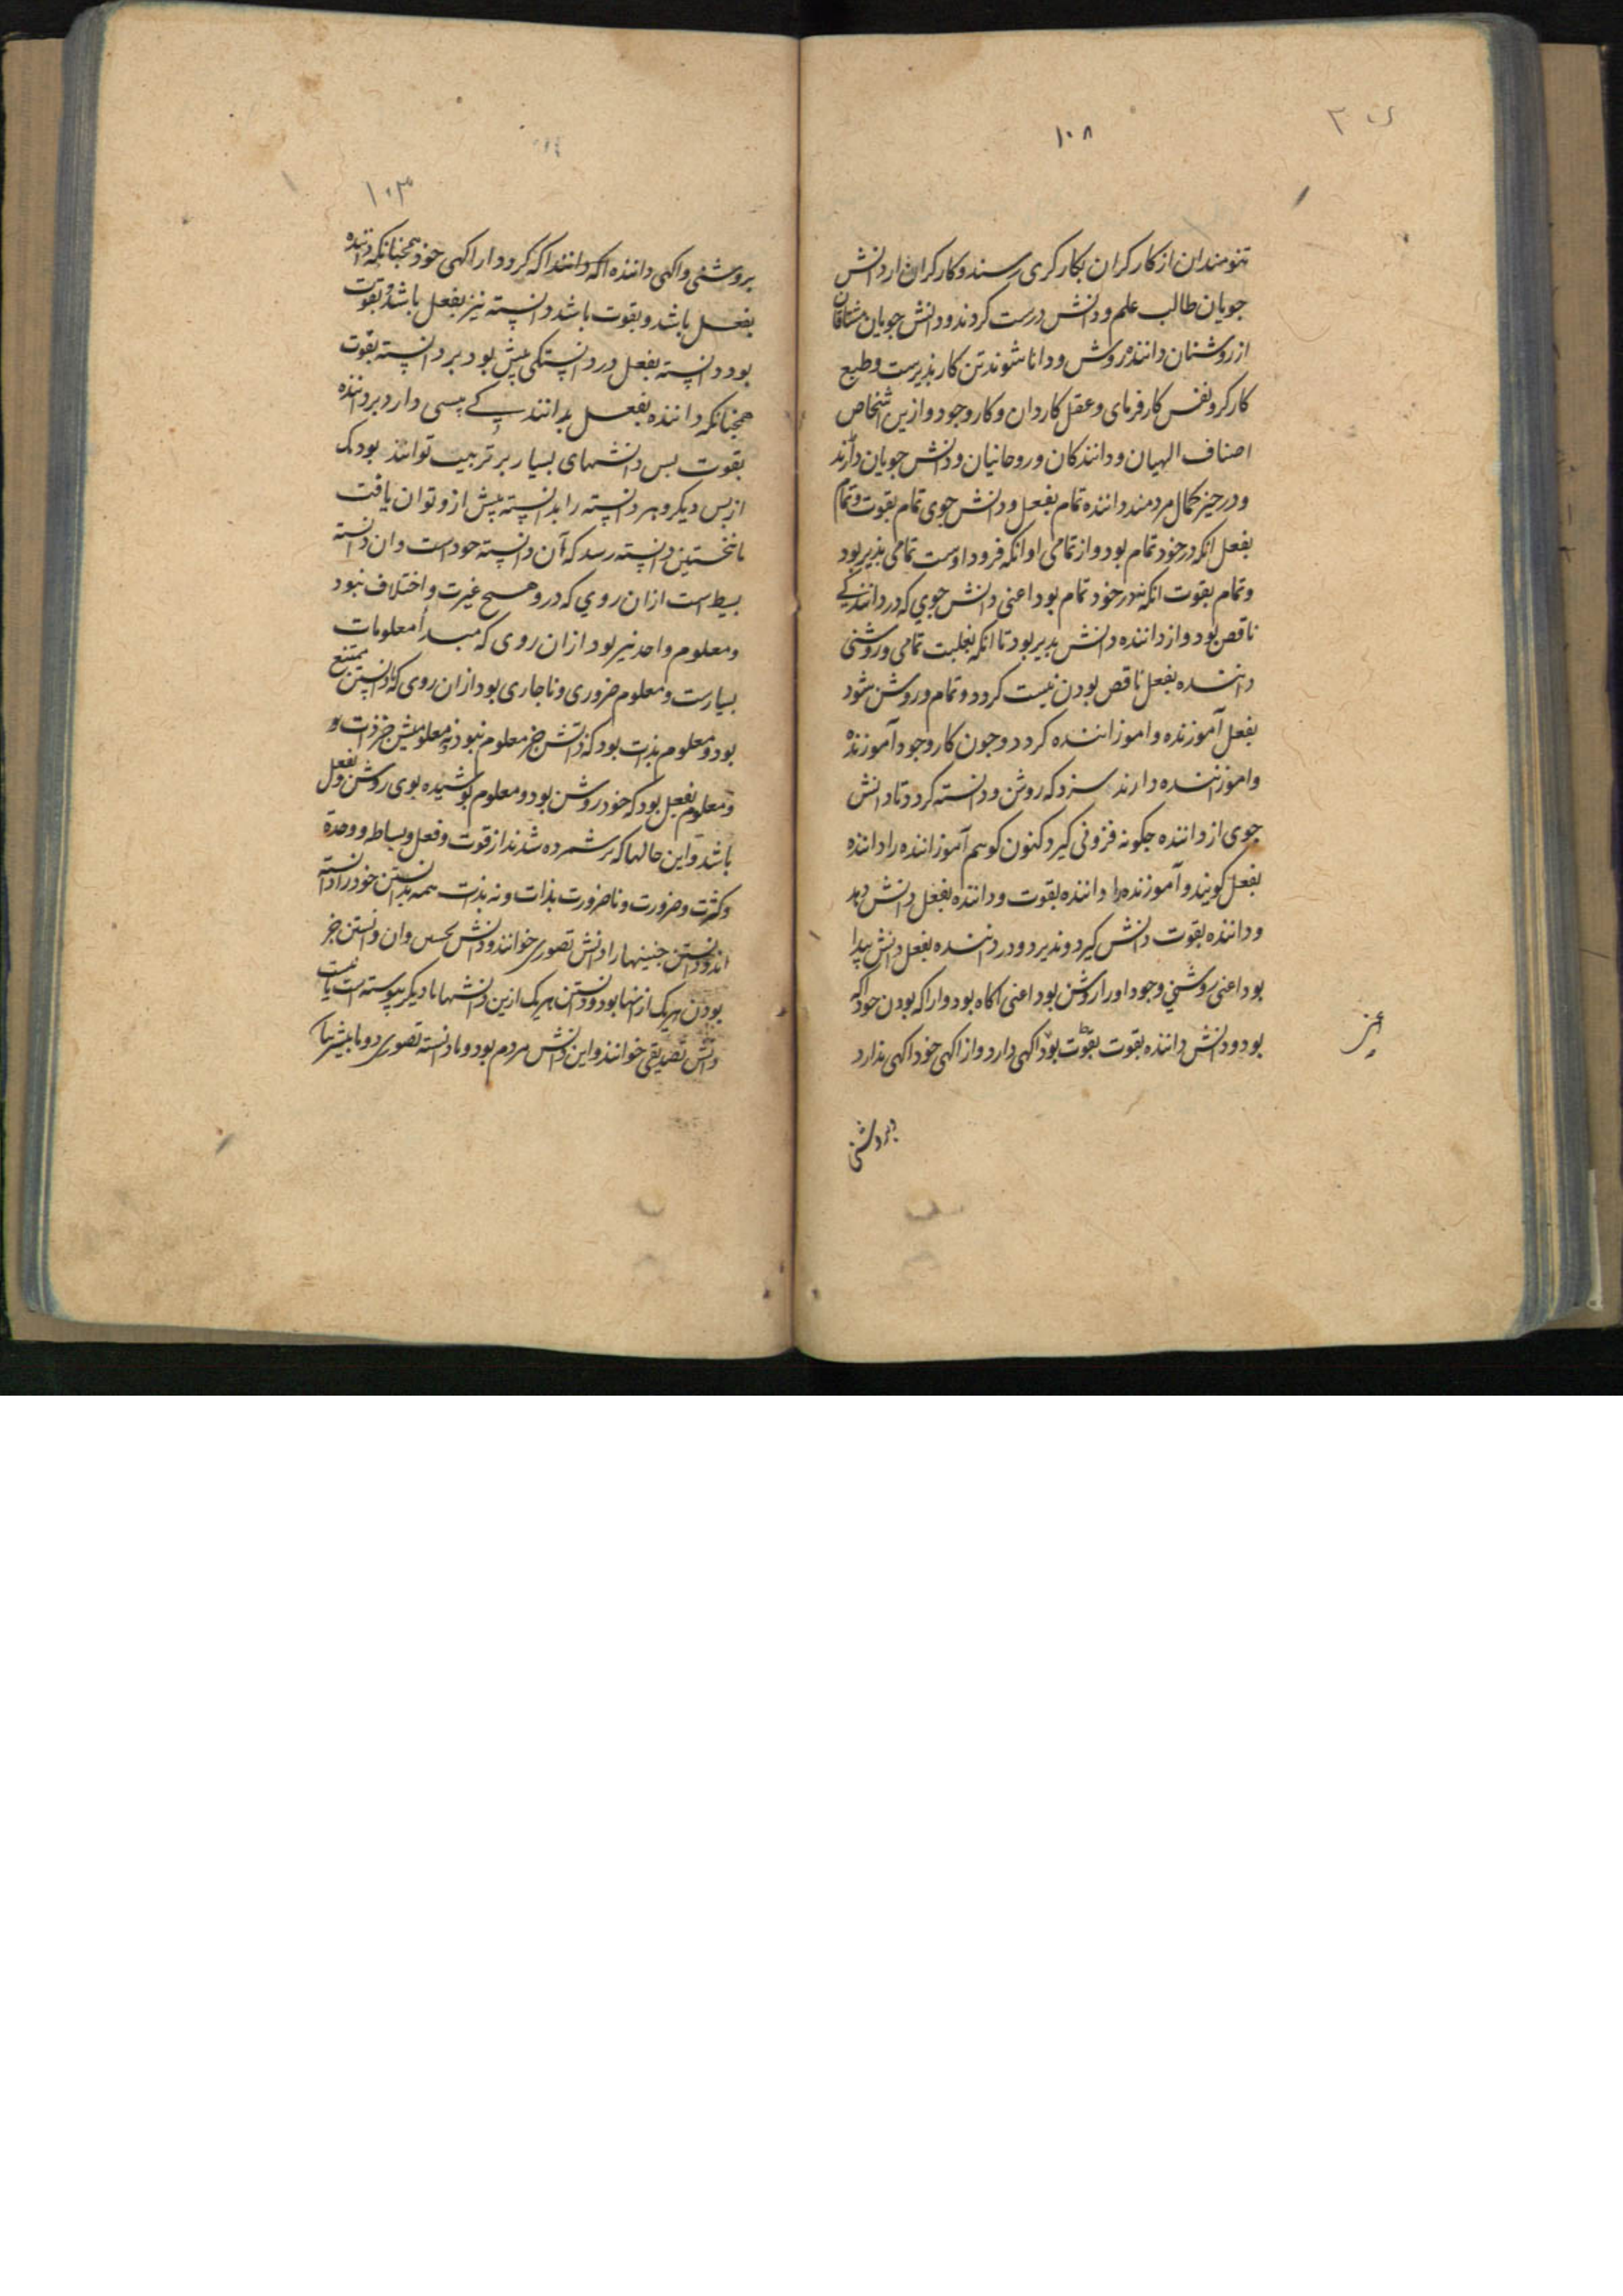 ۱۰۸
تنومندان از کارکران بکارکری رسند و کارکران از دانش
جویان طالب علم و دانش درست کردند و دانش جویان مشتاقان
از روشنان داننده روش و دانا شوند تن کار پذیرست و طبع
کارکر و نفس کارفرمای و عقل کاردان و کار وجود و ازین اشخاص
اصناف الهیان و دانندکان و روحانیان و دانش جویان دارند
و در حیز کمال مردمند داننده تمام بفعل و دانش جوی تمام بقوت و تمام
بفعل انکه در خود تمام بود و از تمامی او انکه فرود اوست تمامی بذیر بود
و تمام بقوت انکه نه در خود تمام بود اعنی دانش جوی که در دانندکی
ناقص بود و از داننده دانش بذیر بود تا انکه بغلبت تمامی و روشنی
داننده بفعل ناقص بودن نیست کردد و تمام و روشن شود
بفعل آموزنده و اموزاننده کردد و جون کار وجود آموزنده
و اموزاننده دارند سزد که روشن و دانسته کردد تا دانش
جوی از داننده جکونه فزونی کیرد کنون کوییم آموزاننده را داننده
بفعل کویند و آموزنده را داننده بقوت و داننده بفعل دانش دهد
و داننده بقوت دانش کیرد و بذیرد و در داننده بفعل دانش پیدا
بود اعنی روشنی وجود او را روشن بود اعنی اکاه بود و ارا که بودن خود اکه
بود و دانش داننده بقوت بقوت بود اکهی دارد و از اکهی خود اکهی ندارد
بروشنی
۱۰۳
بروشنی و اکهی داننده اکه دانند اکه کردد از اکهی خود همجنانکه داننده
بفعل باشد و بقوت باشد دانسته نیز بفعل باشد و بقوت
بود و دانسته بفعل در دانستکی پیش بود بر دانسته بقوت
همجنانکه داننده بفعل بدانندکی پیشی دارد بر داننده
بقوت بس دانشهای بسیار بر تربیت توانند بود یک
از بس دیکر و هر دانسته را بدانسته پیش ازو توان یافت
تا نخستین دانسته رسد که آن دانسته خود است و ان دانسته
بسیط است ازان روی که درو هیچ غیرت و اختلاف نبود
و معلوم واحد نیز بود ازان روی که مبدأ معلومات
بسیارست و معلوم ضروری و ناجاری بود ازان روی که نادانستن ممتنع
بود و معلوم بذات بود که ذاتش جز معلوم نبود نه معلومیش جز ذات او
و معلوم بفعل بود که خود روشن بود و معلوم پوشیده بوی روشن و بفعل
باشد و این حالها که برشمرده شدند از قوت و فعل و بساطه و وحدة
و کثرت و ضرورت و ناضرورت بذات و نه بذات همه بدانستن خود را دانسته
اند و دانستن جنینها را دانش تصوری خوانند و دانش بحسی و ان دانستن جز
بودن هریک ازینها بود و دانستن هریک ازین دانشها با دیکر پیوسته است یا نیست
دانش تصدیقی خوانند و این دانش مردم بود و ما دانسته تصوری دو ما بیشتر